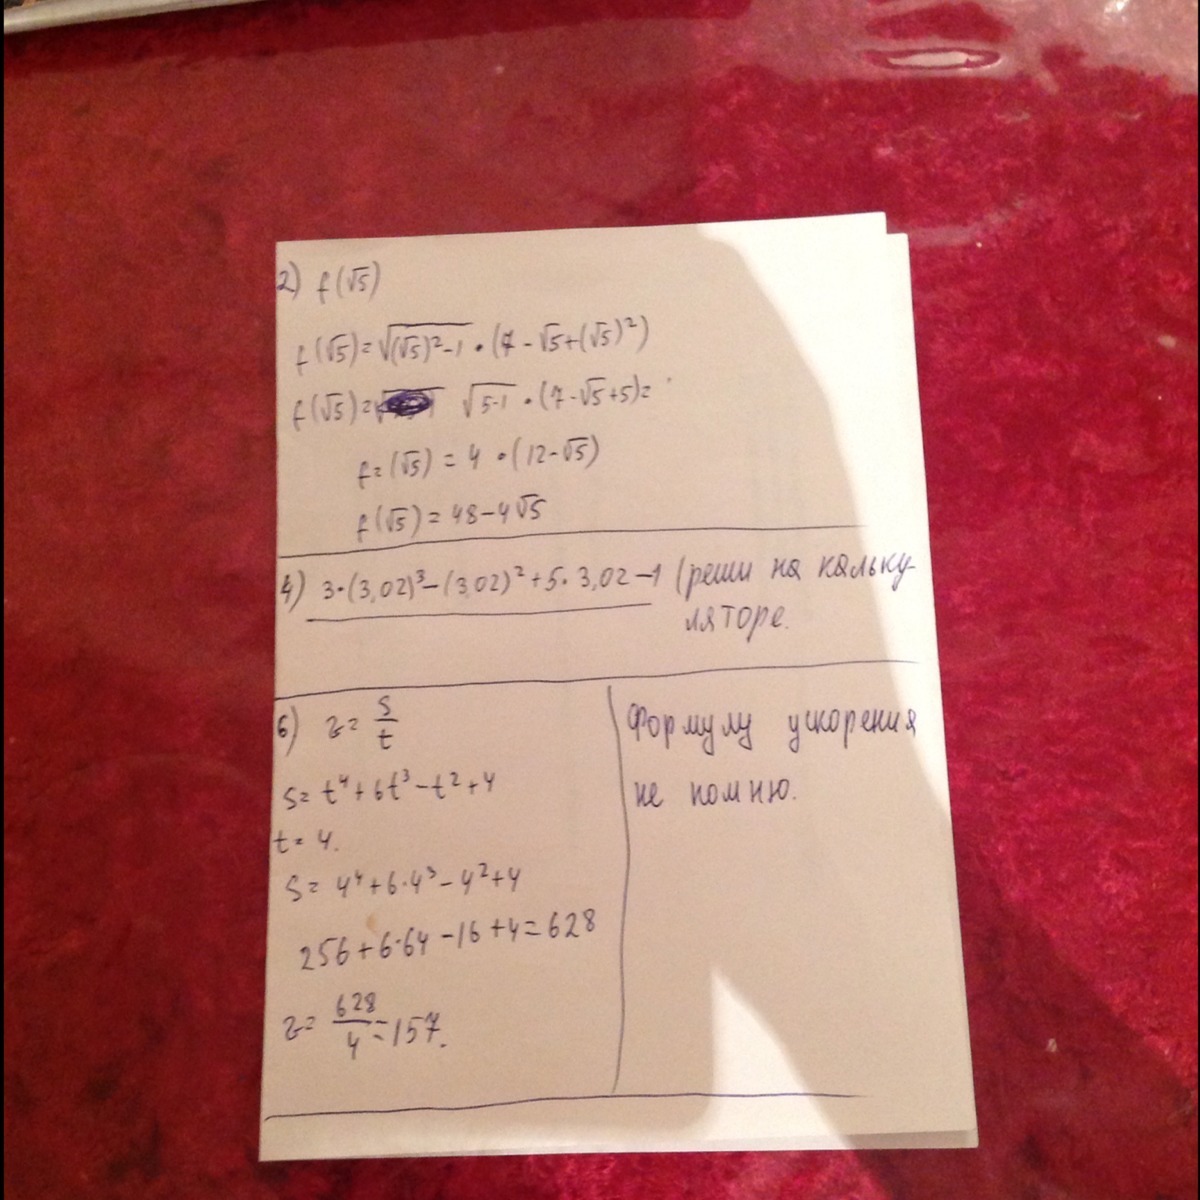 2) f(√5)
f(√5)=√((√5)²-1)·(7-√5+(√5)²)
f(√5)= √(5-1)·(7-√5+5)=
f=(√5)=4·(12-√5)
f(√5)=48-4√5
4) 3·(3,02)³-(3,02)²+5·3,02-1 (реши на кальку-
ляторе.
6) v= s/t
s= t⁴+6t³-t²+4
t= 4.
s= 4⁴+6·4³-4²+4
256+6·64-16+4=628
v= 628/4=157.
Формулу ускорения
не помню.